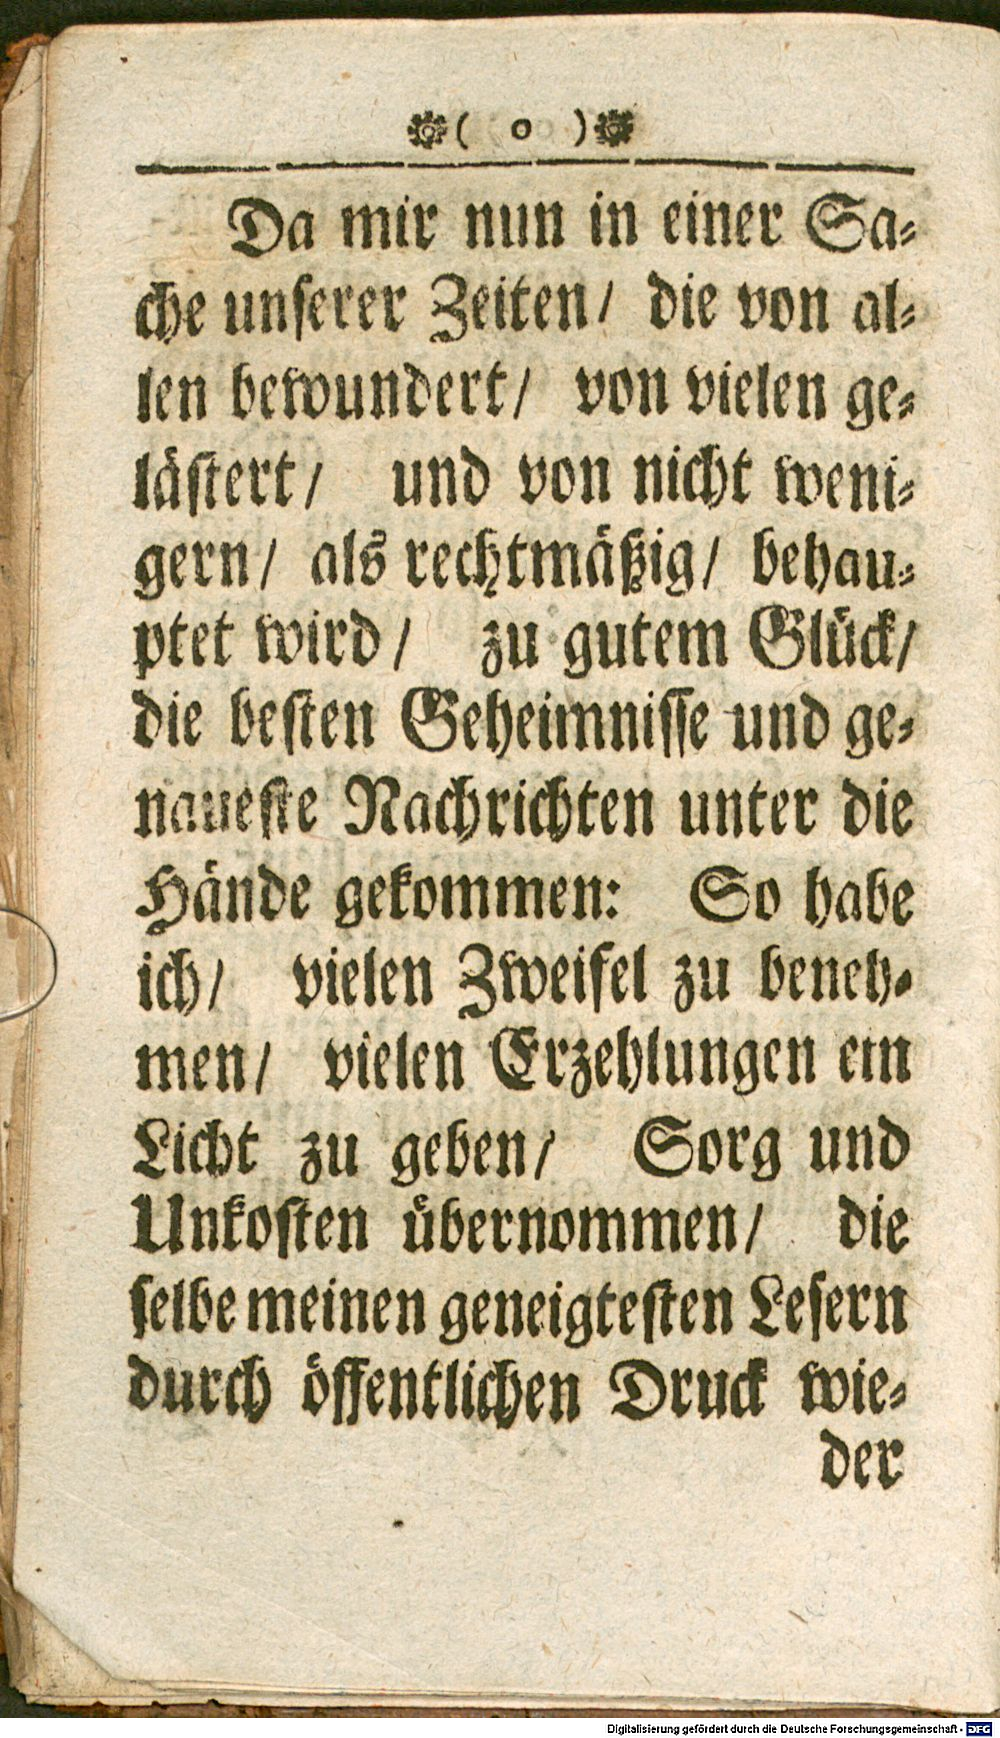 ( o )
Da mir nun in einer Sa-
che unserer Zeiten/ die von al-
len bewundert/ von vielen ge-
lästert/ und von nicht weni-
gern/ als rechtmäßig/ behau-
ptet wird/ zu gutem Glück/
die besten Geheimnisse und ge-
naueste Nachrichten unter die
Hände gekommen: So habe
ich/ vielen Zweifel zu beneh-
men/ vielen Erzehlungen ein
Licht zu geben/ Sorg und
Unkosten übernommen/ die
selbe meinen geneigtesten Lesern
durch öffentlichen Druck wie-
der
Digitalisierung gefördert durch die Deutsche Forschungsgemeinschaft - DFG